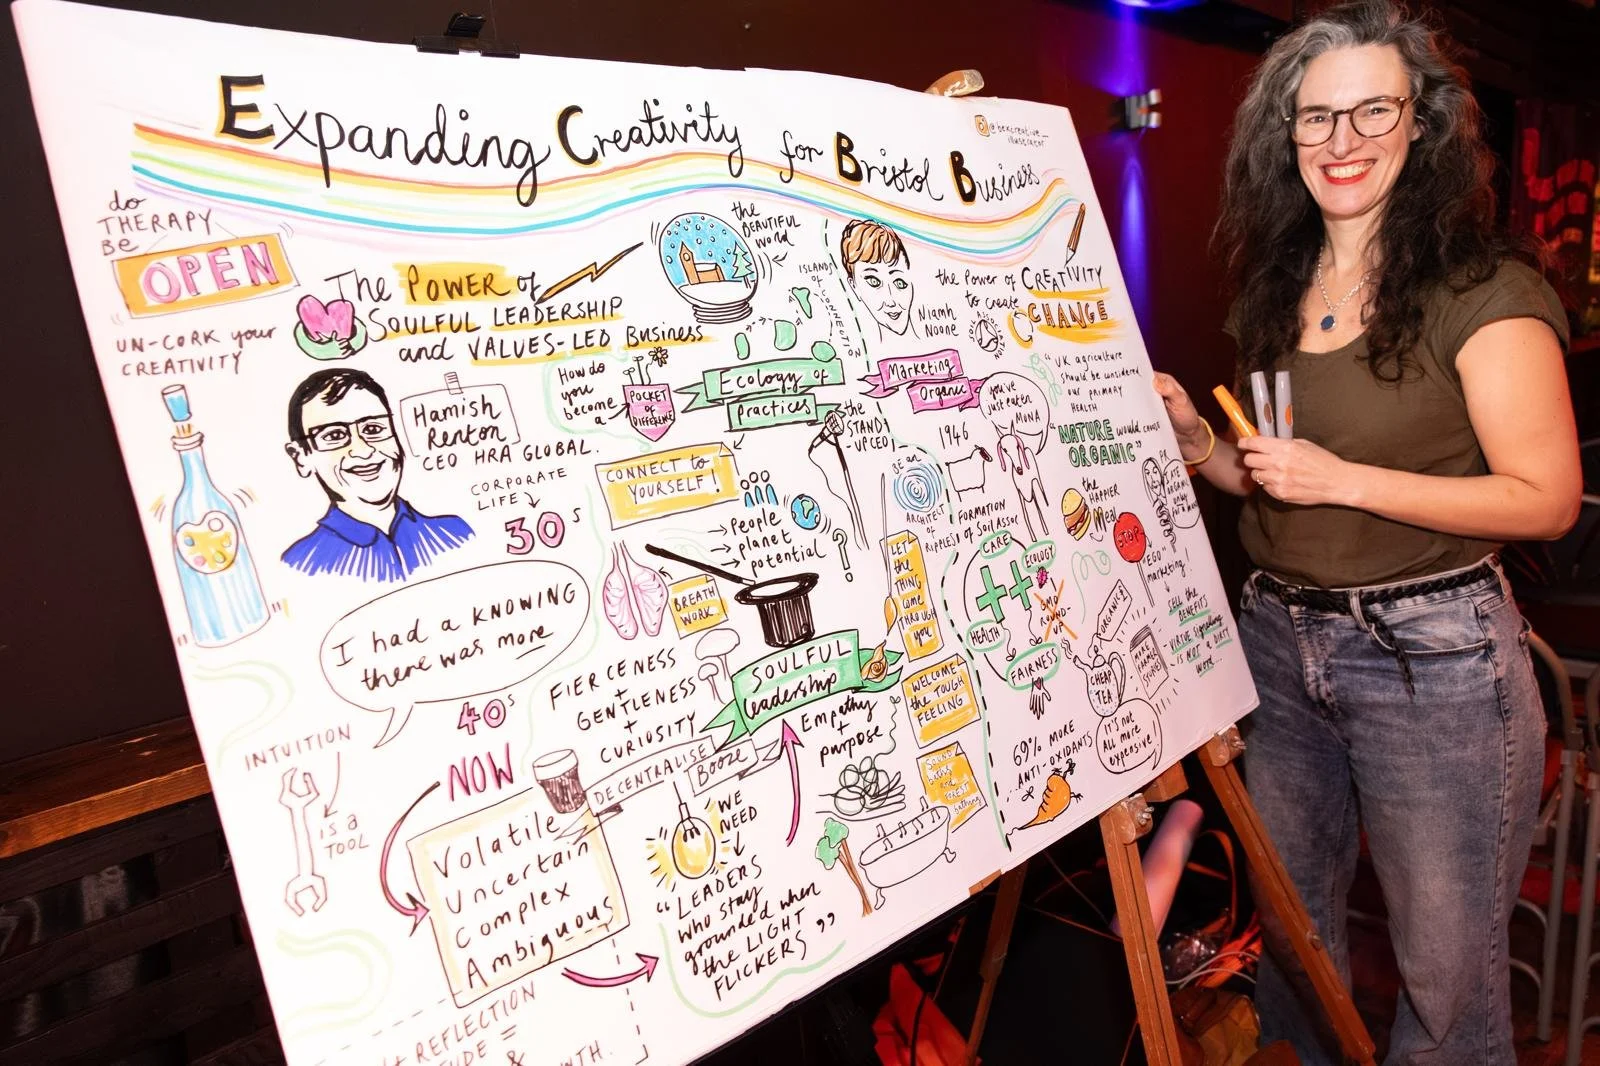 Expanding Creativity for Bristol Business
@bexcreative_
illustrator
do
THERAPY
Be
OPEN
UN-CORK your
CREATIVITY
The POWER of
SOULFUL LEADERSHIP
and VALUES-LED Business
Hamish
Renton
CEO HRA GLOBAL.
CORPORATE
LIFE
30s
I had a KNOWING
there was more
40s
NOW
INTUITION
is a
TOOL
Volatile
Uncertain
Complex
Ambiguous
REFLECTION
=
&
the
BEAUTIFUL
World
ISLANDS
OF
CONNECTION
How do
you
become
a
POCKET
OF
DIFFERENCE
Ecology of
Practices
the
STAND
-UP CEO
CONNECT to
YOURSELF!
People
planet
potential
?
BREATH
WORK.
FIERCENESS
+
GENTLENESS
+
CURIOSITY
SOULFUL
leadership
Empathy
+
purpose
DECENTRALISE
Booze
WE
NEED
"LEADERS
who stay
grounded when
the LIGHT
FLICKERS"
BE an
ARCHITECT
OF
RIPPLES
LET
the
THING
come
THROUGH
you
WELCOME
the TOUGH
FEELING
SOUND
baths
and
FOREST
bathing
Niamh
Noone
the Power of CREATIVITY
to create
CHANGE
SOIL ASSOCIATION
Marketing
Organic
you've
just eaten
MONA
"UK agriculture
should be considered
our PRIMARY
HEALTH
"NATURE would choose
ORGANIC"
1946
FORMATION
of Soil Assoc
the
HAPPIER
Meal
STOP
PR
I ATE
ORGANIC
only
for a
"EGO"
marketing!
SELL the
BENEFITS
VIRTUE signalling
is NOT a DIRTY
word...
CARE
ECOLOGY
HEALTH
FAIRNESS
GMO
ROUND-
UP
ORGANIC?
CHEAP
TEA
MORE
FARMER
STORIES
IT'S not
ALL more
expensive!
69% MORE
...ANTI-OXIDANTS